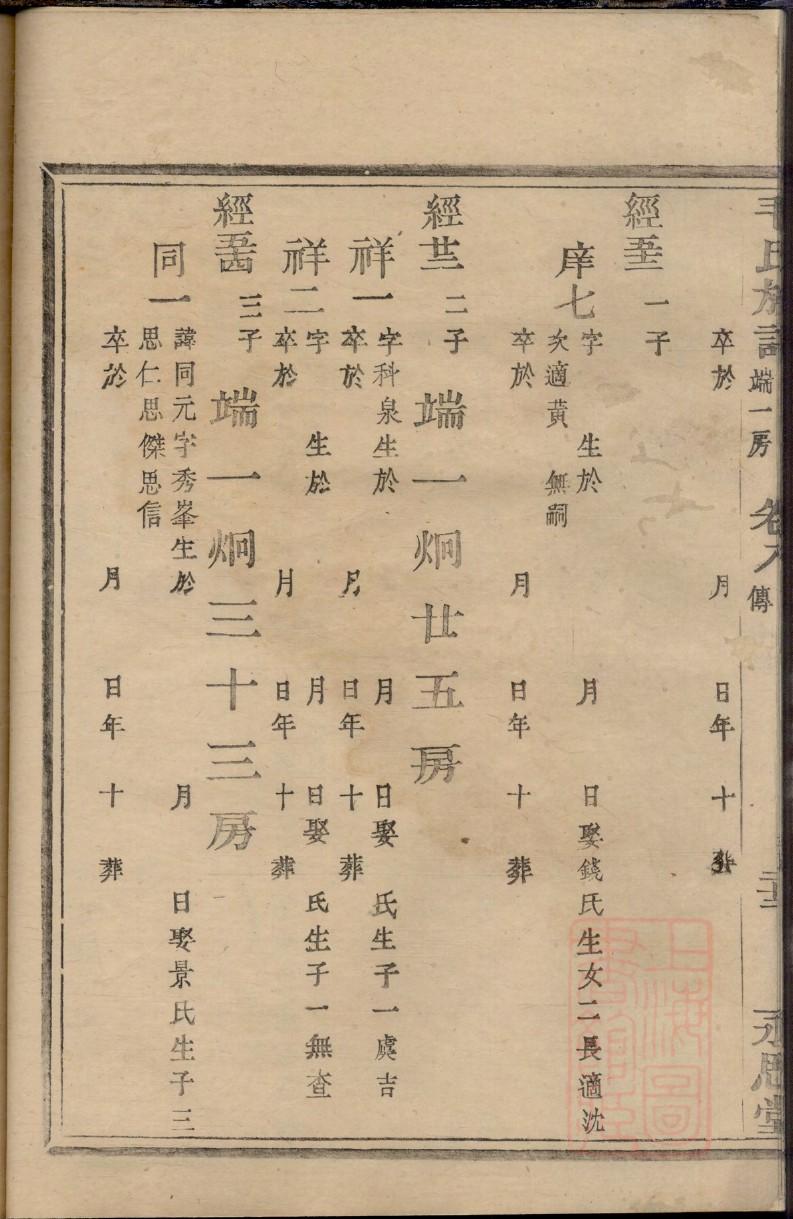 毛氏族譜 端一房 卷八 傳 永思堂
卒於 月 日年 十 葬
經 一子
庠七 字 生於 月 日娶錢氏生女二長適沈
次適黄 無嗣
卒於 月 日年 十 葬
經 二子 端一炯廿五房
祥一 字科泉生於 月 日娶 氏生子一虞吉
卒於 月 日年 十 葬
祥二 字 生於 月 日娶 氏生子一無查
卒於 月 日年 十 葬
經 三子 端一炯三十三房
同一 諱同元字秀峯生於 月 日娶景氏生子三
思仁思傑思信
卒於 月 日年 十 葬
上海圖
書館藏